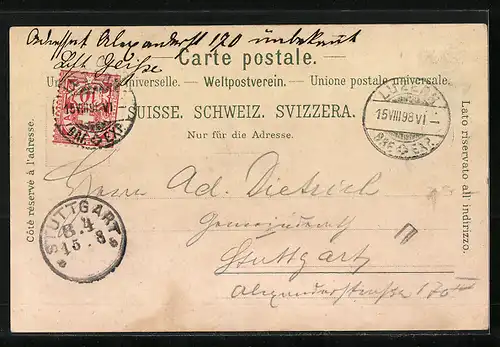 Adressat Alexanderst 170 unbekannt
Carte postale.
Union postale universelle. — Weltpostverein. — Unione postale universale.
SUISSE. SCHWEIZ. SVIZZERA.
Nur für die Adresse.
Côté réservé à l'adresse.
Lato riservato all'indirizzo.
10
LUZERN
15 VIII 98 VI
BRF. EXP.
LUZERN
15 VIII 98 VI
BRF. EXP.
STUTTGART
15 8
Herrn Ad. Dietrich
Stuttgart
Alexanderstrasse 170